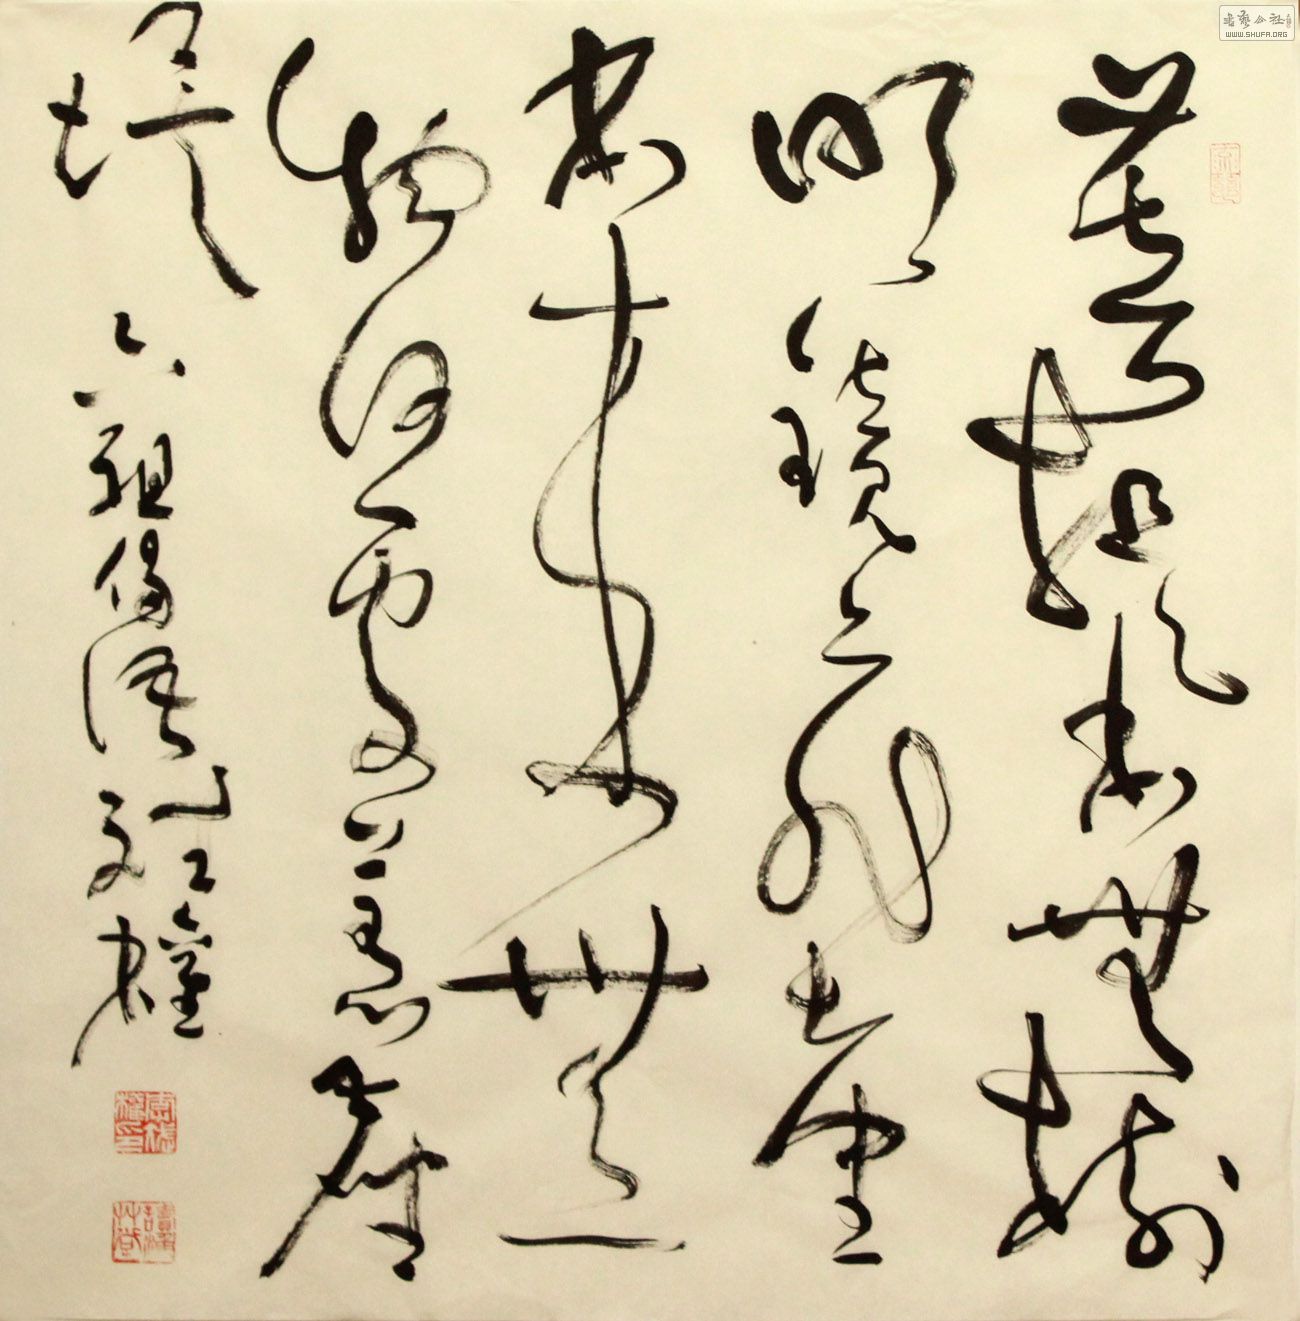 菩提本無樹
明鏡亦非臺
本來無一
物何處惹塵
埃
六祖偈語
書藝公社
WWW.SHUFA.ORG